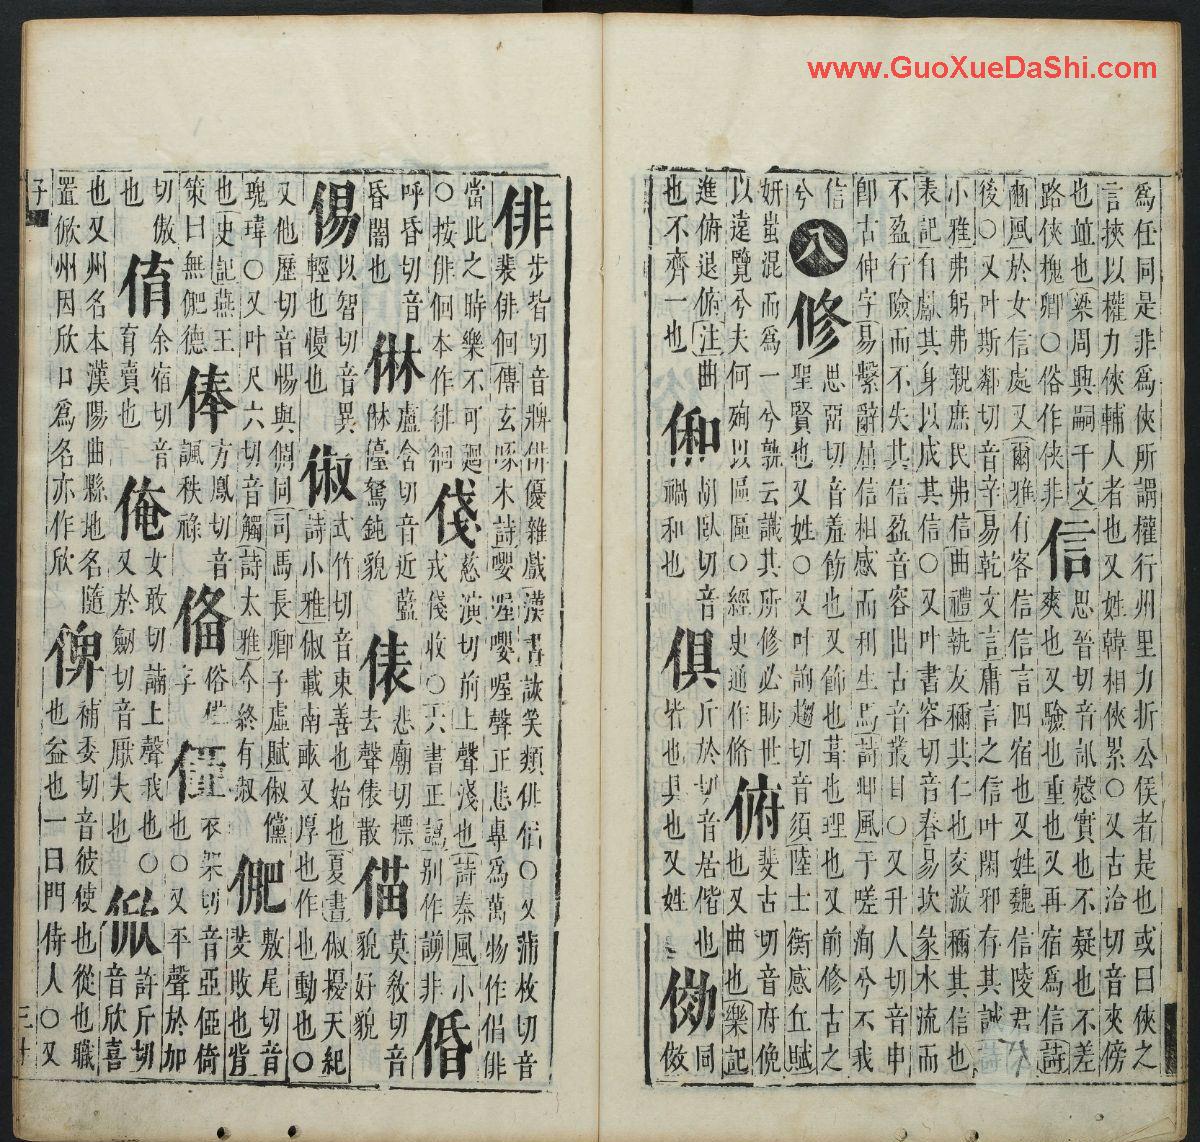 爲任同是非爲俠所謂權行州里力折公侯者是也或曰俠之
言挾以權力俠輔人者也又姓韓相俠累○又古洽切音夾傍
也並也梁周興嗣千文
路俠槐卿○俗作俠非
信
思晉切音訊愨實也不疑也不差
爽也又驗也重也又再宿爲信詩
豳風於女信處又爾雅有客信信言四宿也又姓魏信陵君
後○又叶斯鄰切音辛易乾文言庸言之信叶閑邪存其誠詩
小雅弗躬弗親庶民弗信曲禮執友稱其仁也交遊稱其信也
表記有獻其身以成其信○又叶書容切音舂易坎彖水流而
不盈行險而不失其信盈音容出古音叢目○又升人切音申
卽古伸字易繫辭屈信相感而利生焉詩邶風于嗟洵兮不我
信
兮
八
修
思畱切音羞飭也又飾也葺也理也又前修古之
聖賢也又姓○又叶詢趨切音須陸士衡感丘賦
妍蚩混而爲一兮孰云識其所修必眇世
以遠覽兮夫何殉以區區○經史通作脩
俯
斐古切音府俛
也又曲也樂記
進俯退俯注曲
也不齊一也
俰
胡臥切音
禍和也
俱
斤於切音居偕也同
皆也具也又姓
倣
俳
步皆切音牌俳優雜戲漢書詼笑類俳倡○又蒲枚切音
裴俳佪傳玄啄木詩嚶喔嚶喔聲正悲專爲萬物作倡俳
當此之時樂不可迴
○按俳佪本作徘徊
俴
慈演切前上聲淺也詩秦風小
戎俴收○六書正譌别作諓非
㑉
呼昏切音
昏闇也
㑣
盧含切音近藍
㑣儓駑鈍貌
俵
悲廟切標
去聲俵散
㑤
莫敎切音
貌好貌
㑥
以智切音異
輕也慢也
俶
式竹切音束善也始也夏書俶擾天紀
詩小雅俶載南畝又厚也作也動也○
又他歷切音惕與倜同司馬長卿子虛賦俶儻
瑰瑋○又叶尺六切音觸詩太雅令終有俶
俷
敷尾切音
斐敗也背
也史記燕王
策曰無俷德
俸
方鳳切音
諷秩祿
俻
俗備
字
俹
衣架切音亞俹倚
也○又平聲於加
切傲
也
㑬
余宿切音
育賣也
俺
女敢切諵上聲我也○
又於劒切音厭大也
㑫
許斤切
音欣喜
也又州名本漢陽曲縣地名隨
置㑫州因欣口爲名亦作欣
俾
補委切音彼使也從也職
也益也一曰門侍人○又
子
三十
www.GuoXueDaShi.com